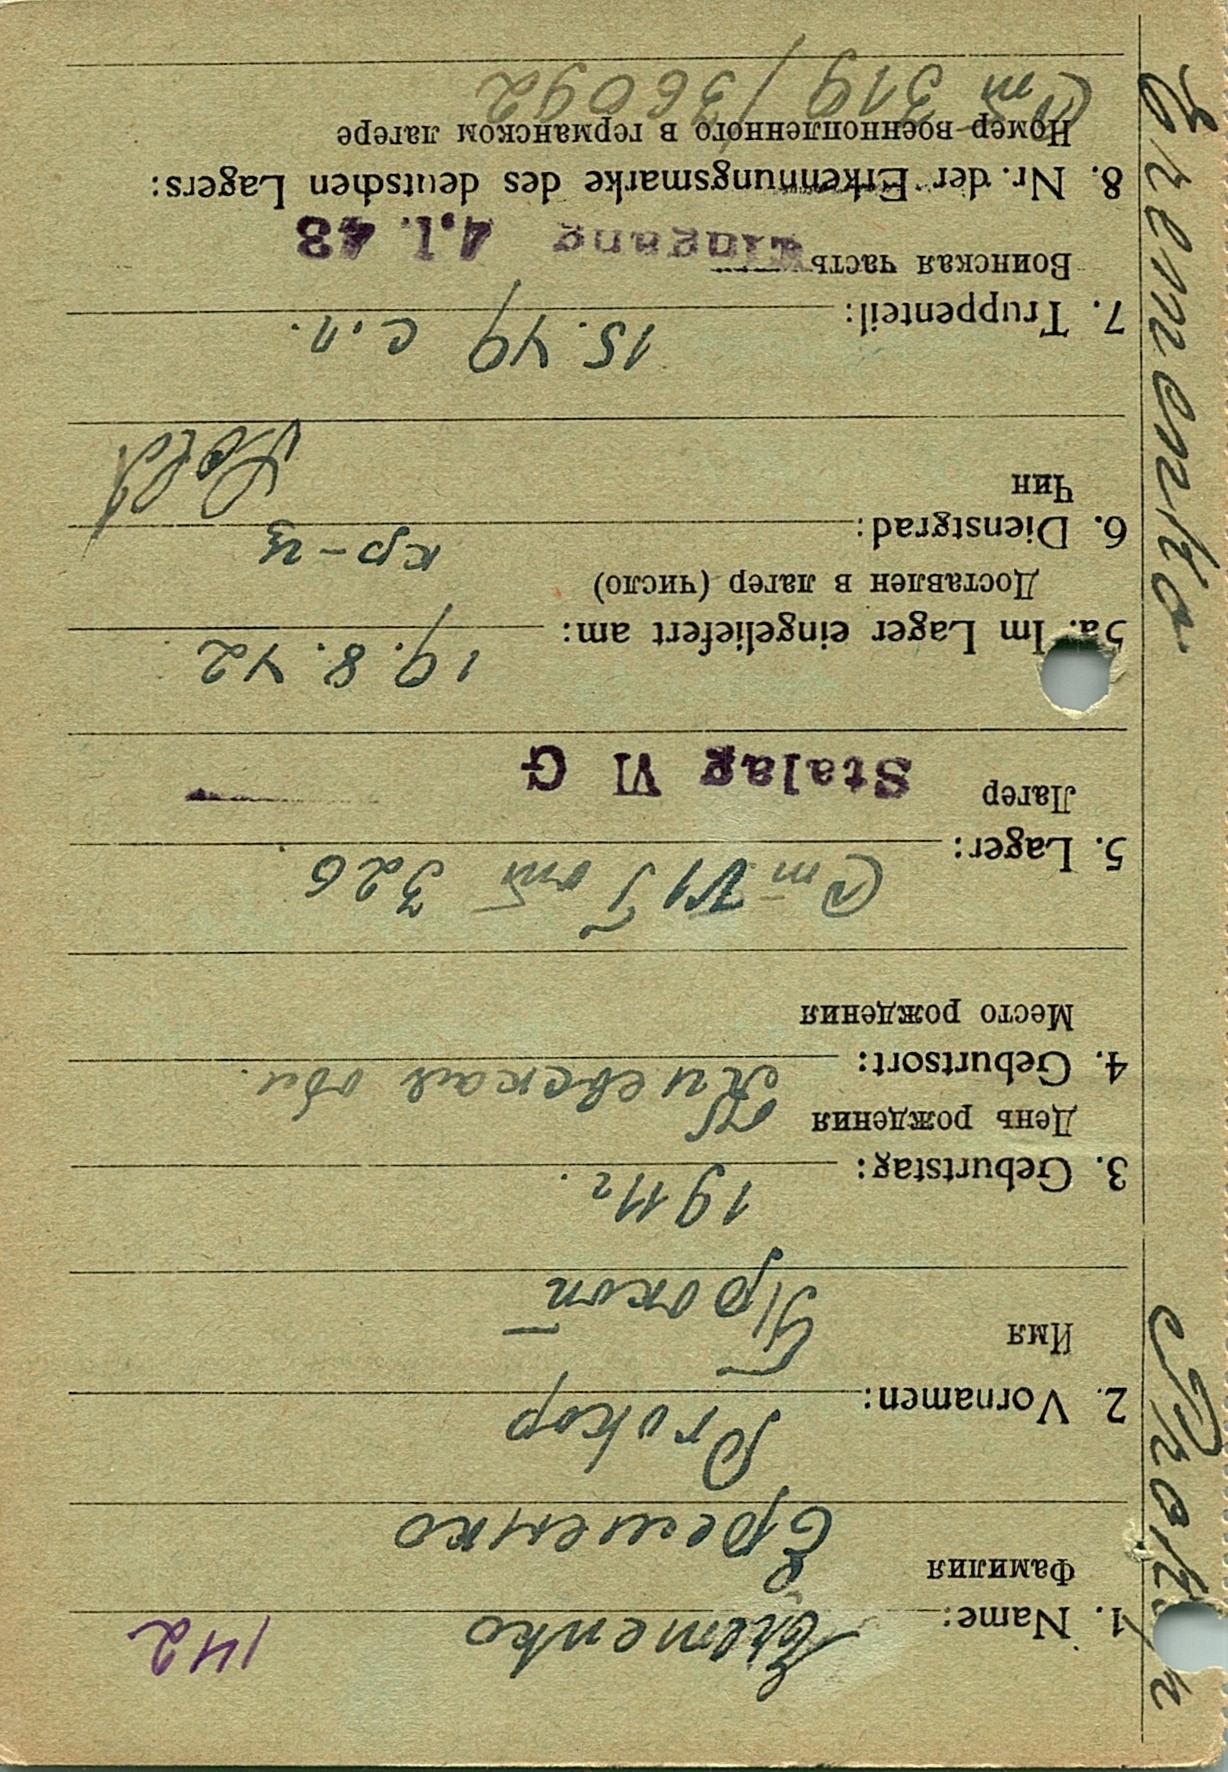 142
1. Name: Eremenko
Фамилия Еременко
2. Vornamen: Prokop
Имя Прокоп
3. Geburtstag: 1911г.
День рождения
4. Geburtsort: Киевская обл.
Место рождения
5. Lager: Ст VI 326
Лагер Stalag VI G
5a. Im Lager eingeliefert am: 19.8.42
Доставлен в лагер (число)
6. Dienstgrad: кр-ц
Чин Sold
7. Truppenteil: 15.49 с.п.
Воинская часть Eingang 4.1.43
8. Nr. der Erkennungsmarke des deutschen Lagers:
Номер военнопленного в германском лагере
Ст 319/36092
Eremenko Prokop